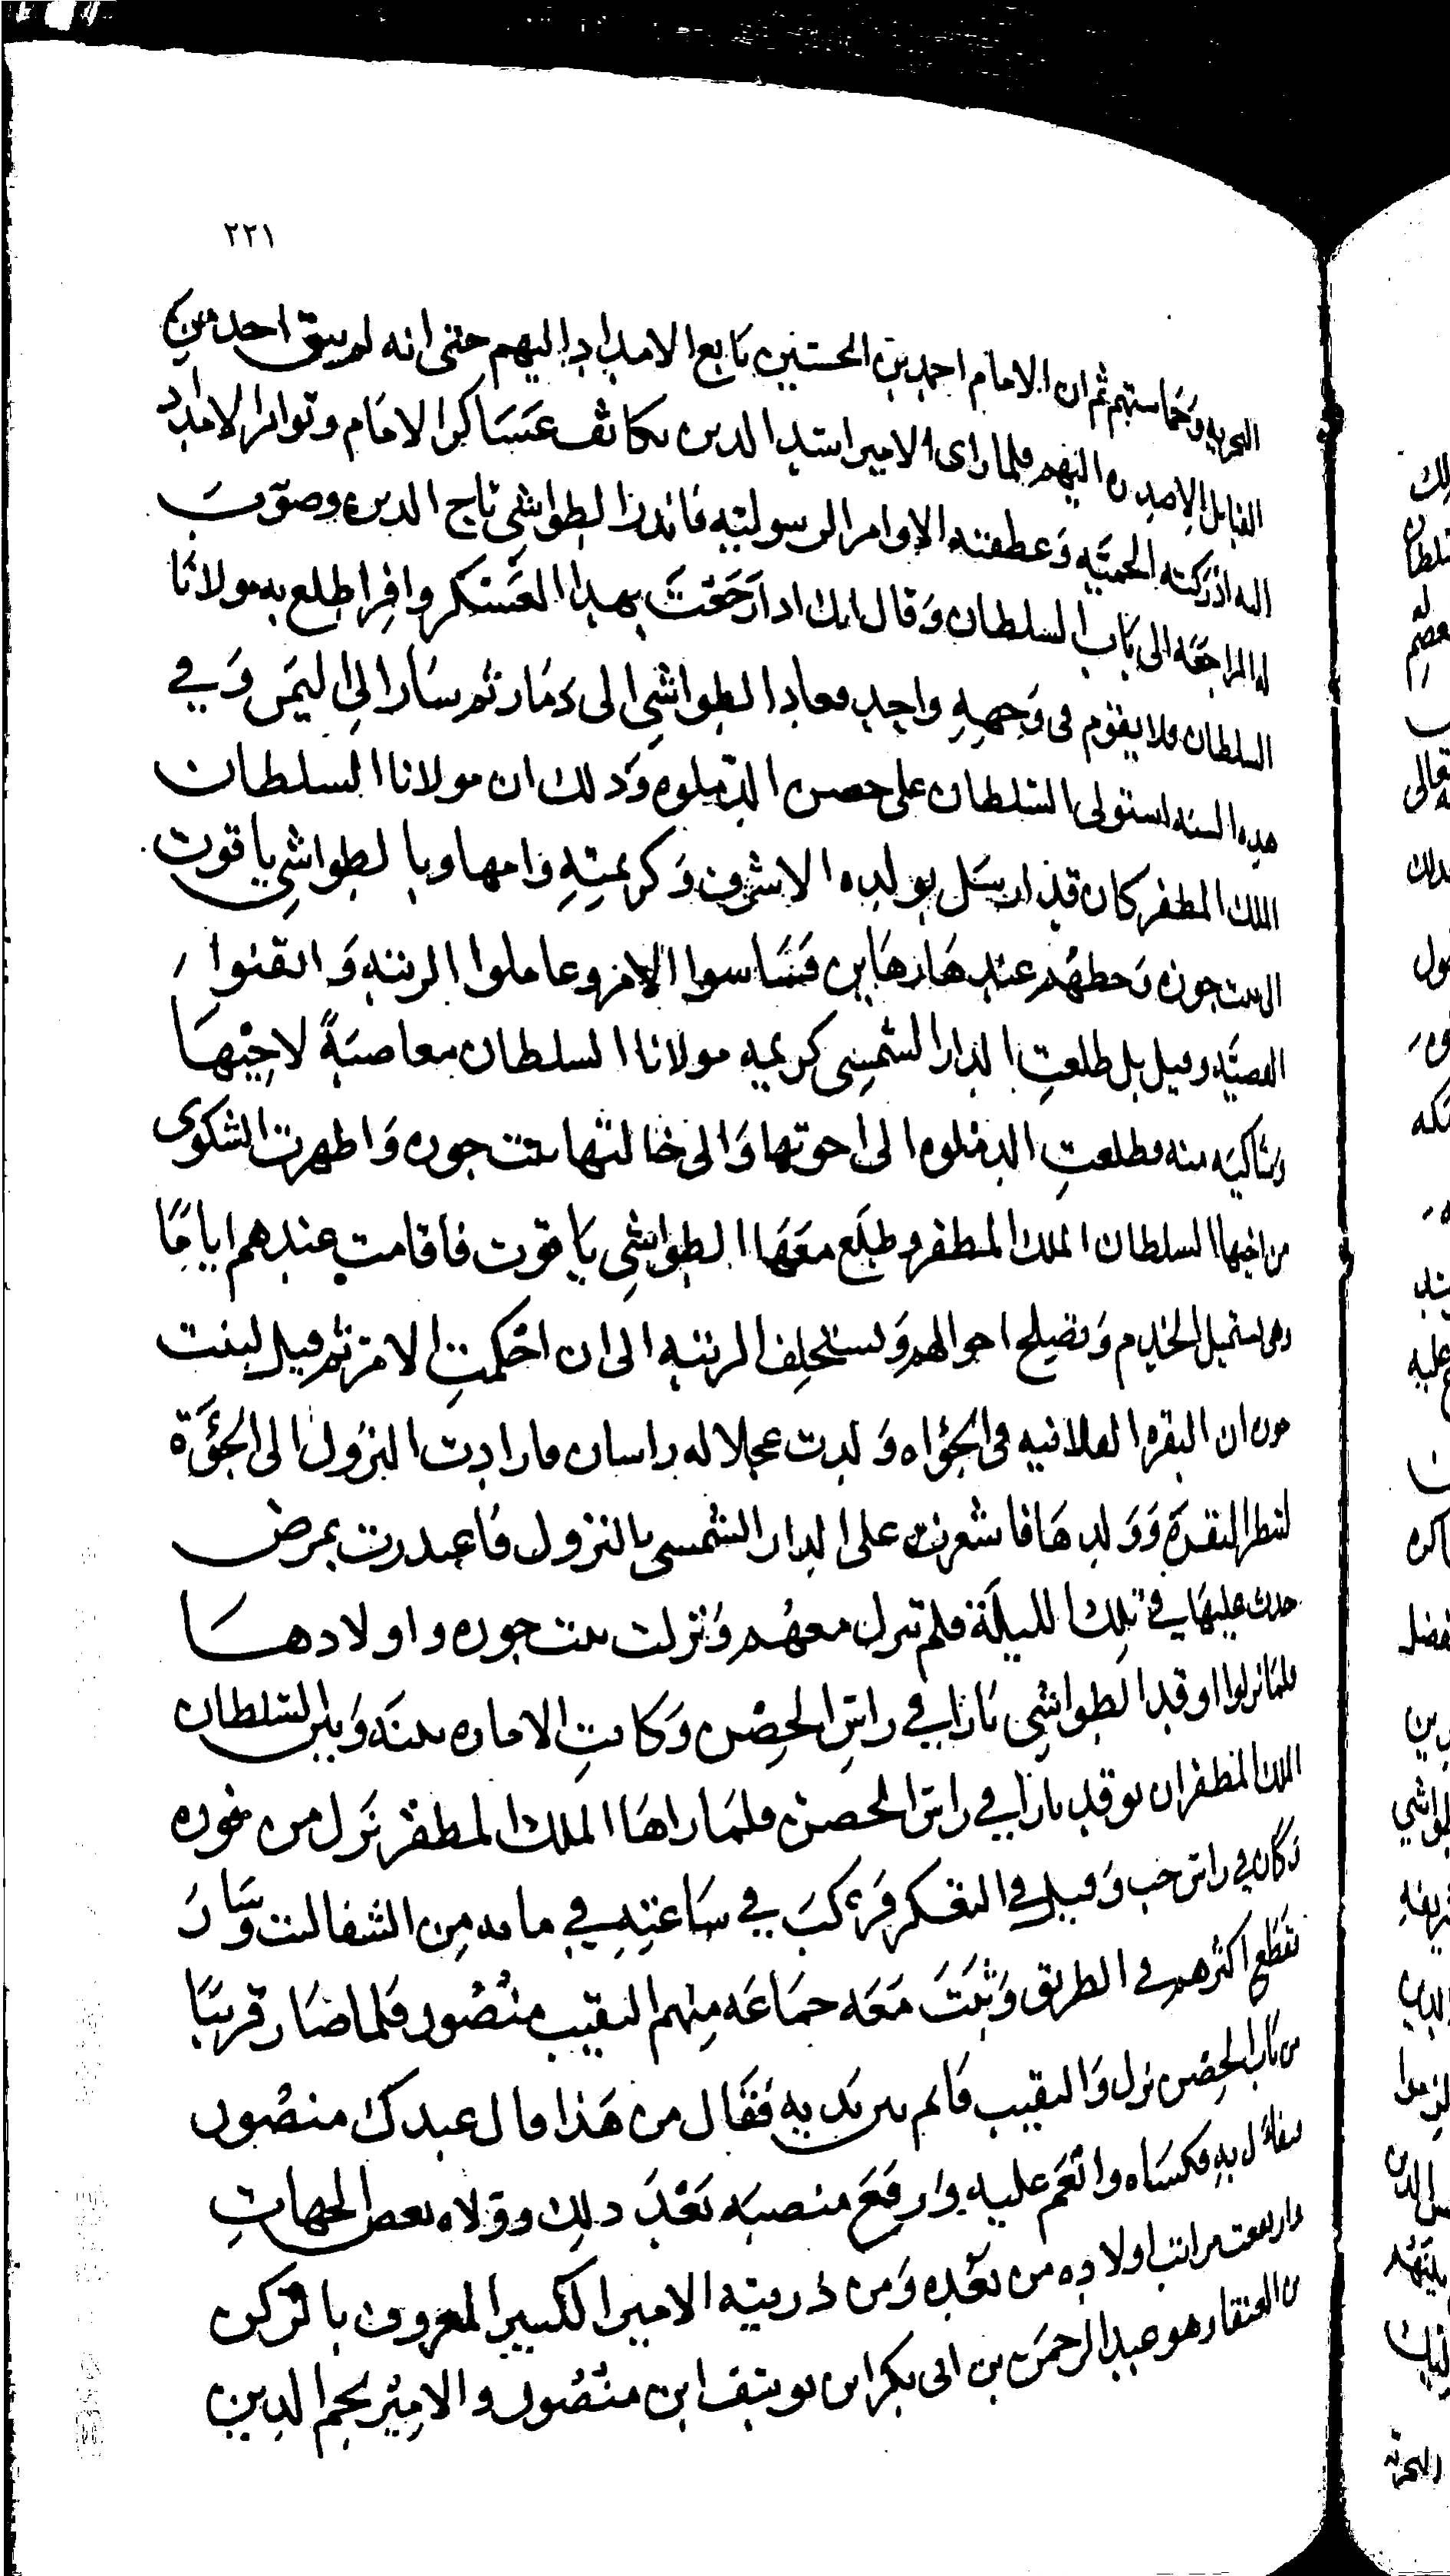 ٢٢١
البحريه وحماستهم ثم ان الامام احمد بن الحسين تابع الامداد اليهم حتى انه لم يبق احد من
القبايل الا صدره اليهم فلما راى الامير اسد الدين تكاثف عساكر الامام وتواتر الامداد
اليه ادركته الحميّه وعطفته الاوامر الرسوليّه فانذر الطواشي تاج الدين وصوّب
له المراجعه الى باب السلطان وقال انك اذا رجعت بهذا العسكر وافرا طلع به مولانا
السلطان فلا يقوم في وجهه واحد فعاد الطواشي الى ذمار ثم سار الى اليمن وفي
هذه السنه استولى السلطان على حصن الدملوه وذلك ان مولانا السلطان
الملك المظفر كان قد ارسل بولده الاشرف وكريمته وامها وبالطواشي ياقوت
الى بنت جوزه تحطهم عندها رهاين فساسوا الامر وعاملوا الرتبه واتقنوا
القصيّه وقيل بل طلعت الدار الشمسي كريمه مولانا السلطان مغاضبةً لاخيها
وشاكيه منه فطلعت الدملوه الى اخوتها والى خالتها بنت جوزه واظهرت الشكوى
من اخيها السلطان الملك المظفر وطلع معها الطواشي ياقوت فاقامت عندهم اياما
وهي تستميل الخدم وتصلح احوالهم وتستحلف الرتبه الى ان احكمت الامر ثم قيل لبنت
جوزه ان البقره الفلانيه في الجؤاه ولدت عجلا له راسان فارادت النزول الى الجؤة
لتنظر البقرة وولدها فاشعرت على الدار الشمسي بالنزول فاعتذرت بمرض
حدث عليها في تلك الليلة فلم تنزل معهم ونزلت بنت جوزه واولادها
فلما نزلوا اوقد الطواشي نارا في راس الحصن وكانت الاماره بينه وبين السلطان
الملك المظفر ان توقد نارا في راس الحصن فلما راها الملك المظفر نزل من فوره
وكان في راس حب وقيل في التعكر فركب في ساعته في مايه من الشفاليت وسار
تقطع اكثرهم في الطريق وثبت معه جماعه منهم النقيب منصور فلما صار قريبا
من باب الحصن نزل والنقيب قايم بين يديه فقال من هذا قال عبدك منصور
فتفاءل به فكساه وانعم عليه وارتفع منصبه بعد ذلك وولاه بعض الجهات
وارتفعت مراتب اولاده من بعده ومن ذريته الامير الكبير المعروف بالتركن
بن العنقار هو عبد الرحمن بن ابي بكر ابن يوسف ابن منصور والامير نجم الدين